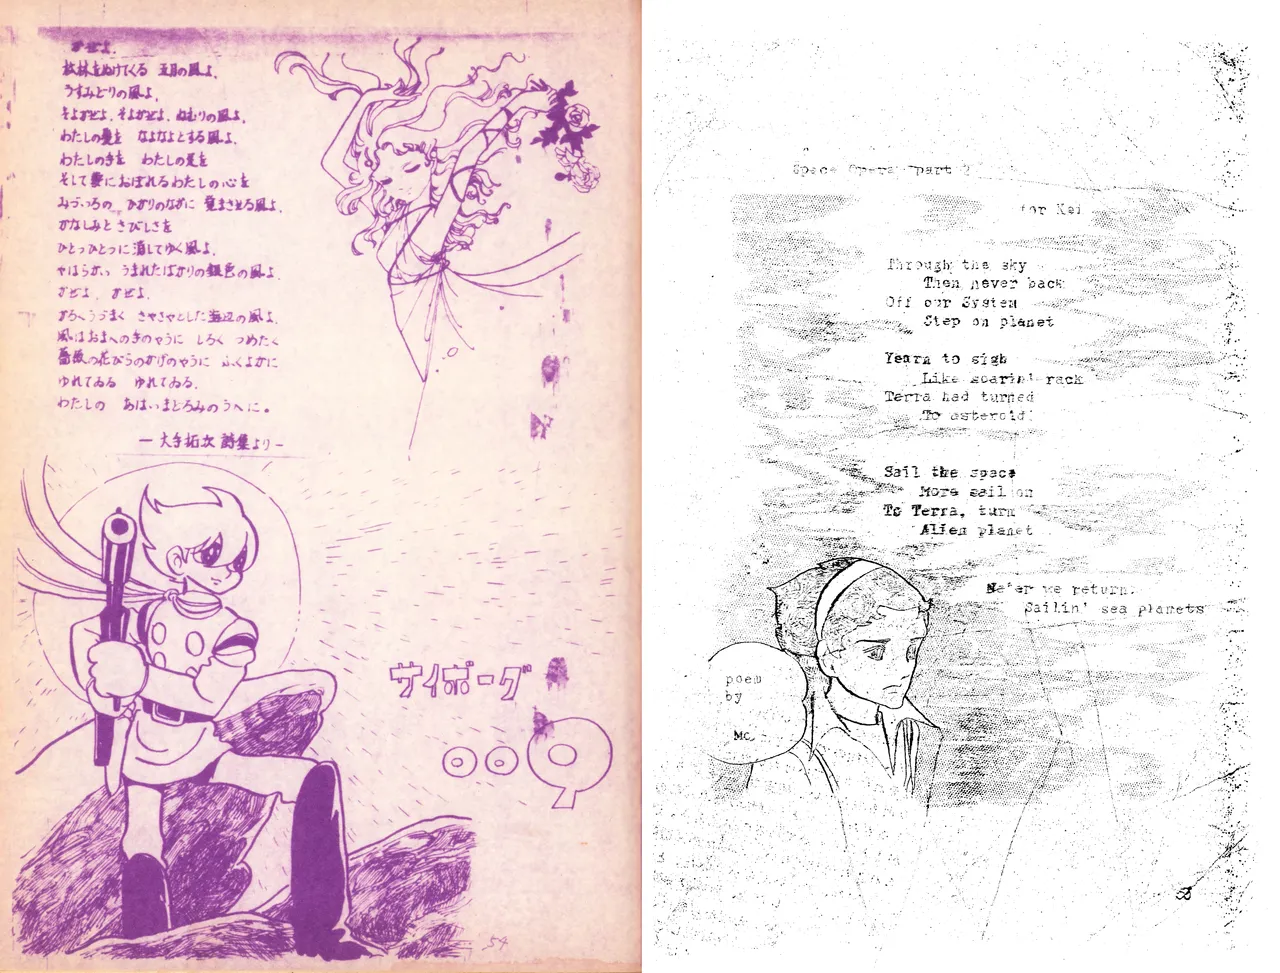 かぜよ、
松林をぬけてくる 五月の風よ、
うすみどりの風よ、
そよかぜよ、そよかぜよ、ねむりの風よ、
わたしの髪を なよなよとする風よ、
わたしの手を わたしの足を
そして夢におぼれるわたしの心を
みづいろの ひかりのなかに 覚まさせる風よ、
かなしみとさびしさを
ひとつひとつに消してゆく風よ、
やはらかい うまれたばかりの銀色の風よ、
かぜよ、かぜよ、
かろくうづまく さやさやとした海辺の風よ、
風はおまへの手のやうに しろく つめたく
薔薇の花びらのかげのやうに ふくよかに
ゆれてゐる ゆれてゐる、
わたしの あはいまどろみのうへに。
―大手拓次 詩集より―
サイボーグ
009
54
Space Opera part 2
for Kei
Through the sky
Then never back
Off our System
Step on planet
Yearn to sigh
Like soarin' rack
Terra had turned
To asteroid!
Sail the space
More sail on
To Terra, turn
Alien planet
Ne'er we return.
Sailin' sea planets
poem
by
MC